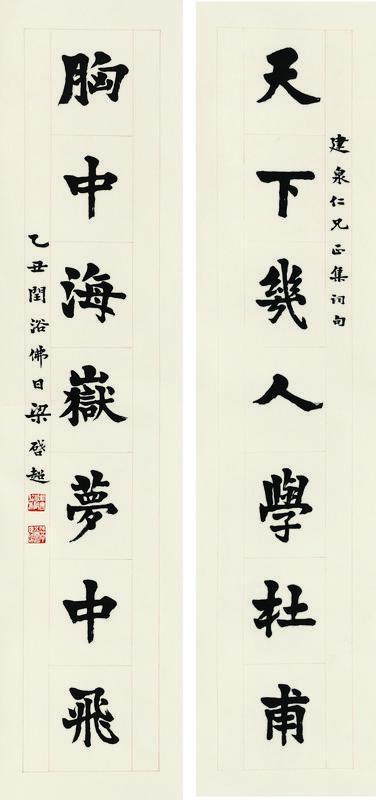 建泉仁兄正集詞句
天下幾人學杜甫
胸中海嶽夢中飛
乙丑閏浴佛日梁啓超